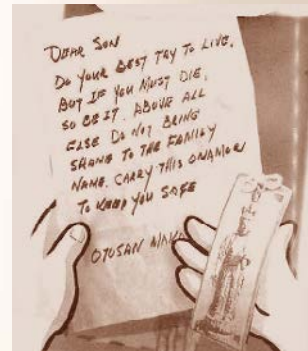 DEAR SON
DO YOUR BEST TRY TO LIVE.
BUT IF YOU MUST DIE,
SO BE IT. ABOVE ALL
ELSE DO NOT BRING
SHAME TO THE FAMILY
NAME. CARRY THIS OMAMORI
TO KEEP YOU SAFE
OTOSAN